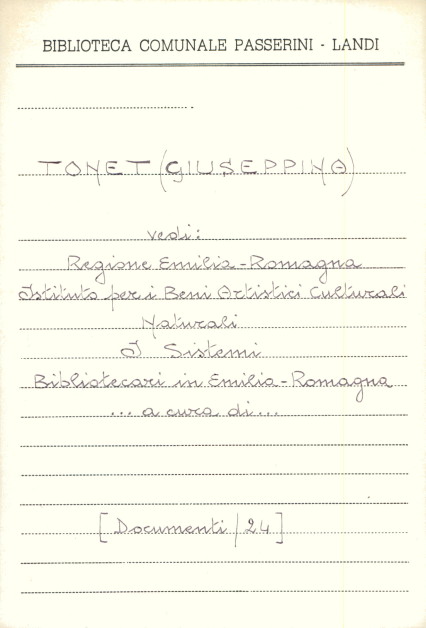 BIBLIOTECA COMUNALE PASSERINI - LANDI
TONET (GIUSEPPINA)
vedi:
Regione Emilia-Romagna
Istituto per i Beni Artistici Culturali
Naturali
I Sistemi
Bibliotecari in Emilia-Romagna
... a cura di...
[Documenti/24]